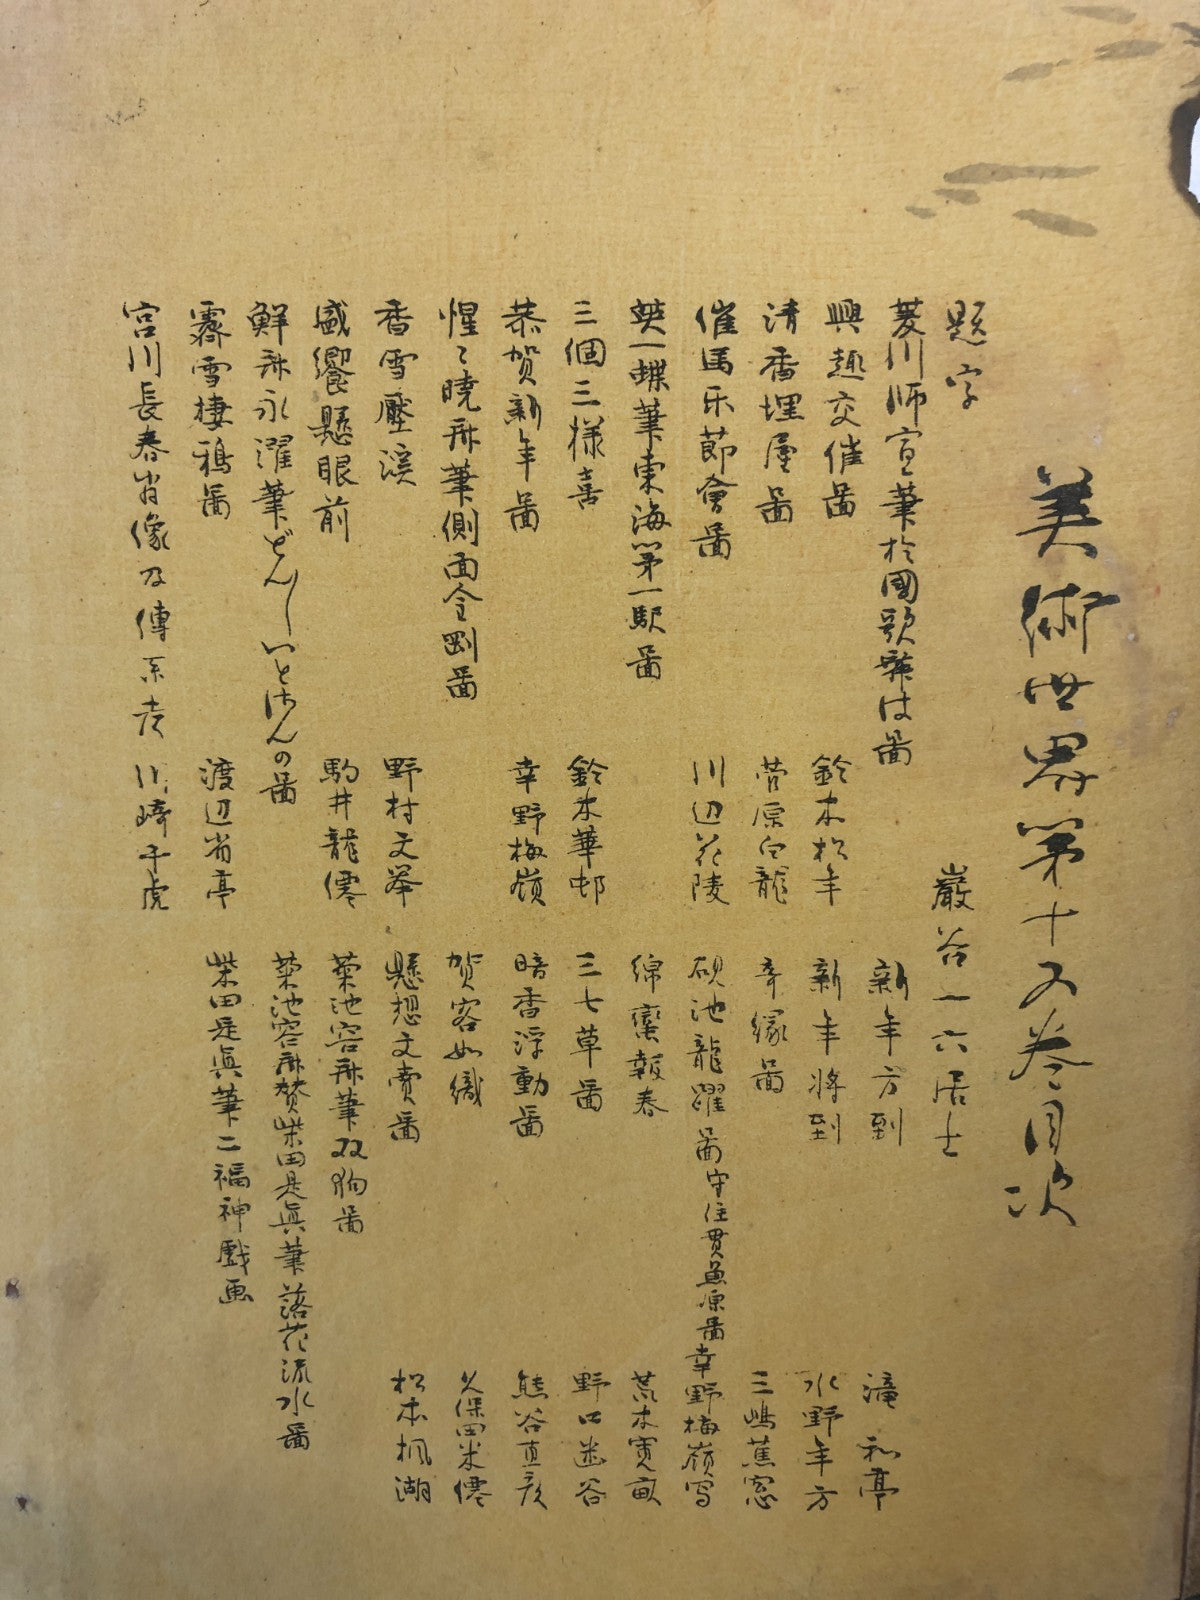 美術世界第十又巻目次
題字 巌谷一六居士
菱川師宣筆於國歌舞は圖
興趣交催圖 鈴木松年
清香埋屋圖 菅原白龍
催馬乐節會圖 川辺花陵
英一蝶筆東海第一駅圖
三個三様喜 鈴木華邨
恭賀新年圖 幸野梅嶺
惺々暁斎筆側面金剛圖
香雪壓溪 野村文挙
盛饗懸眼前 駒井龍僊
鮮斎永濯筆どんしいとはんの圖
霽雪棲鴉圖 渡辺省亭
宮川長春肖像及傳系考 川崎千虎
新年方到 滝和亭
新年将到 水野年方
辛縁圖 三嶋蕉窓
硯池龍躍圖守住貫魚原圖幸野梅嶺写
綿蛮報春 荒木寛畝
三七草圖 野口幽谷
暗香浮動圖 熊谷直彦
賀客如織 久保田米僊
懸想文賣圖 松本楓湖
菊池容斎筆双狗圖
菊池容斎賛柴田是眞筆落花流水圖
柴田是眞筆二福神戲画